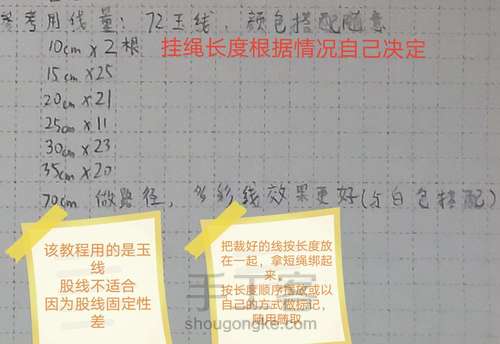 参考用线量：72玉线，颜色搭配随意
10cm×2根
挂绳长度根据情况自己决定
15cm×25
20cm×21
25cm×11
30cm×23
35cm×20
70cm 做路径，多彩线效果更好(与白色搭配)
该教程用的是玉
线
股线不适合
因为股线固定性
差
把裁好的线按长度放
在一起，拿短绳绑起
来。
按长度顺序摆放或以
自己的方式做标记，
随用随取
手工客
shougongke.com